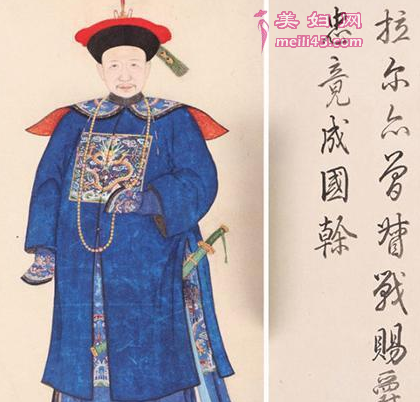 美妇网
meili45.com
拉尔亦曾督戰賜
忠竟成國幹